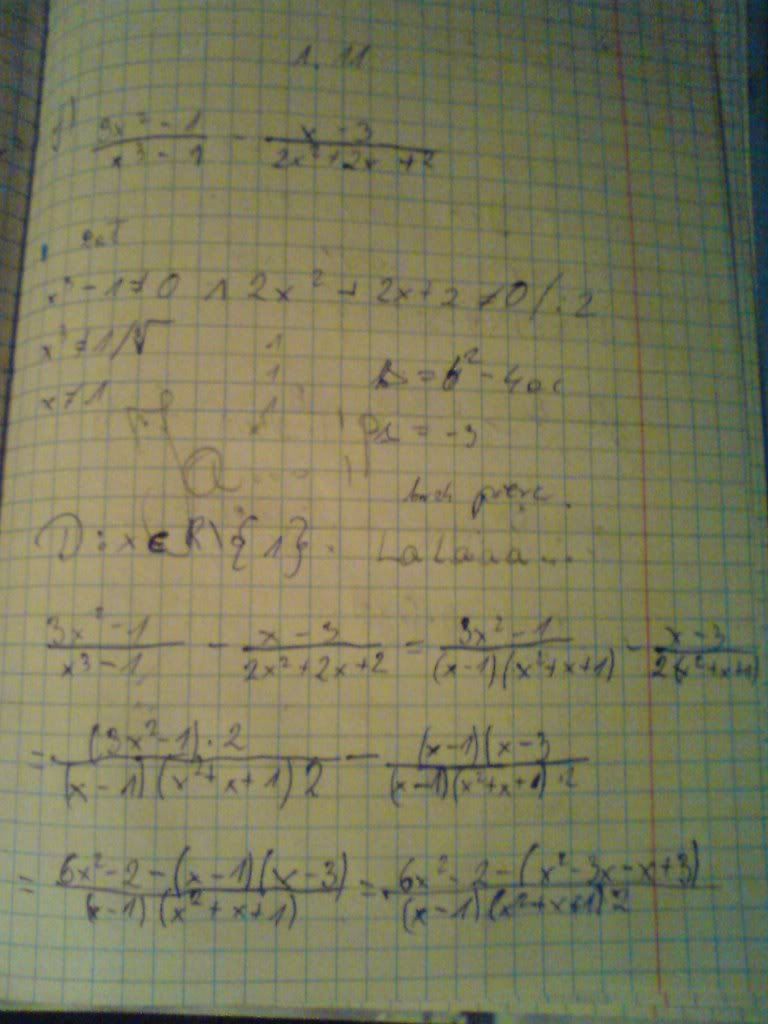 1. 11
\frac{3x^2-1}{x^3-1} - \frac{x-3}{2x^2+2x+2}
zał
x^3-1≠0 ∧ 2x^2+2x+2≠0/:2
x^3≠1/∛ 1
x≠1 1
1
Δ=b^2-4ac
Δ=-3
brak pierw.
D: x∈R\{1}. LaLaaaa...
\frac{3x^2-1}{x^3-1} - \frac{x-3}{2x^2+2x+2} = \frac{3x^2-1}{(x-1)(x^2+x+1)} - \frac{x-3}{2(x^2+x+1)}
= \frac{(3x^2-1)·2}{(x-1)(x^2+x+1)2} - \frac{(x-1)(x-3}{(x-1)(x^2+x+1)·2}
= \frac{6x^2-2-(x-1)(x-3)}{(x-1)(x^2+x+1)} = \frac{6x^2-2-(x^2-3x-x+3)}{(x-1)(x^2+x+1)2}